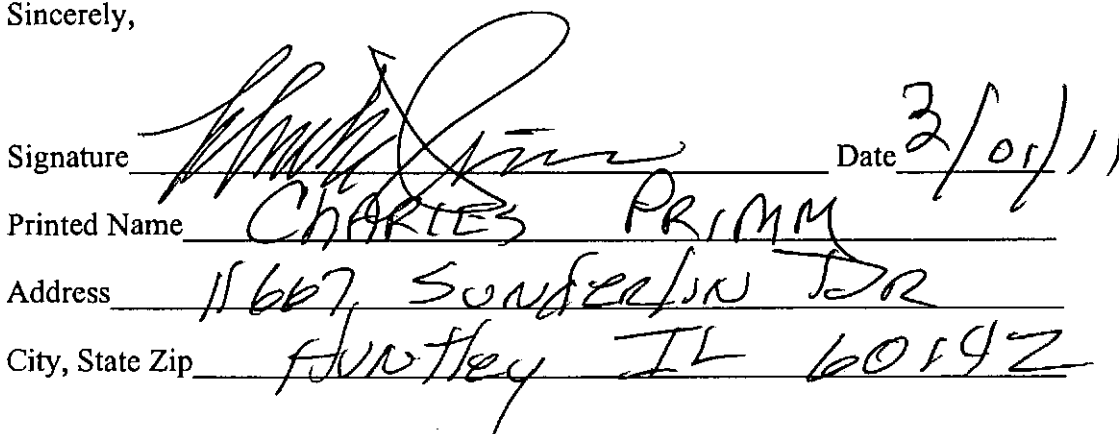 Sincerely,
Signature Date 3/01/11
Printed Name CHARLES PRIMM
Address 11667 SUNDERLIN DR
City, State Zip HUNTley IL 60142